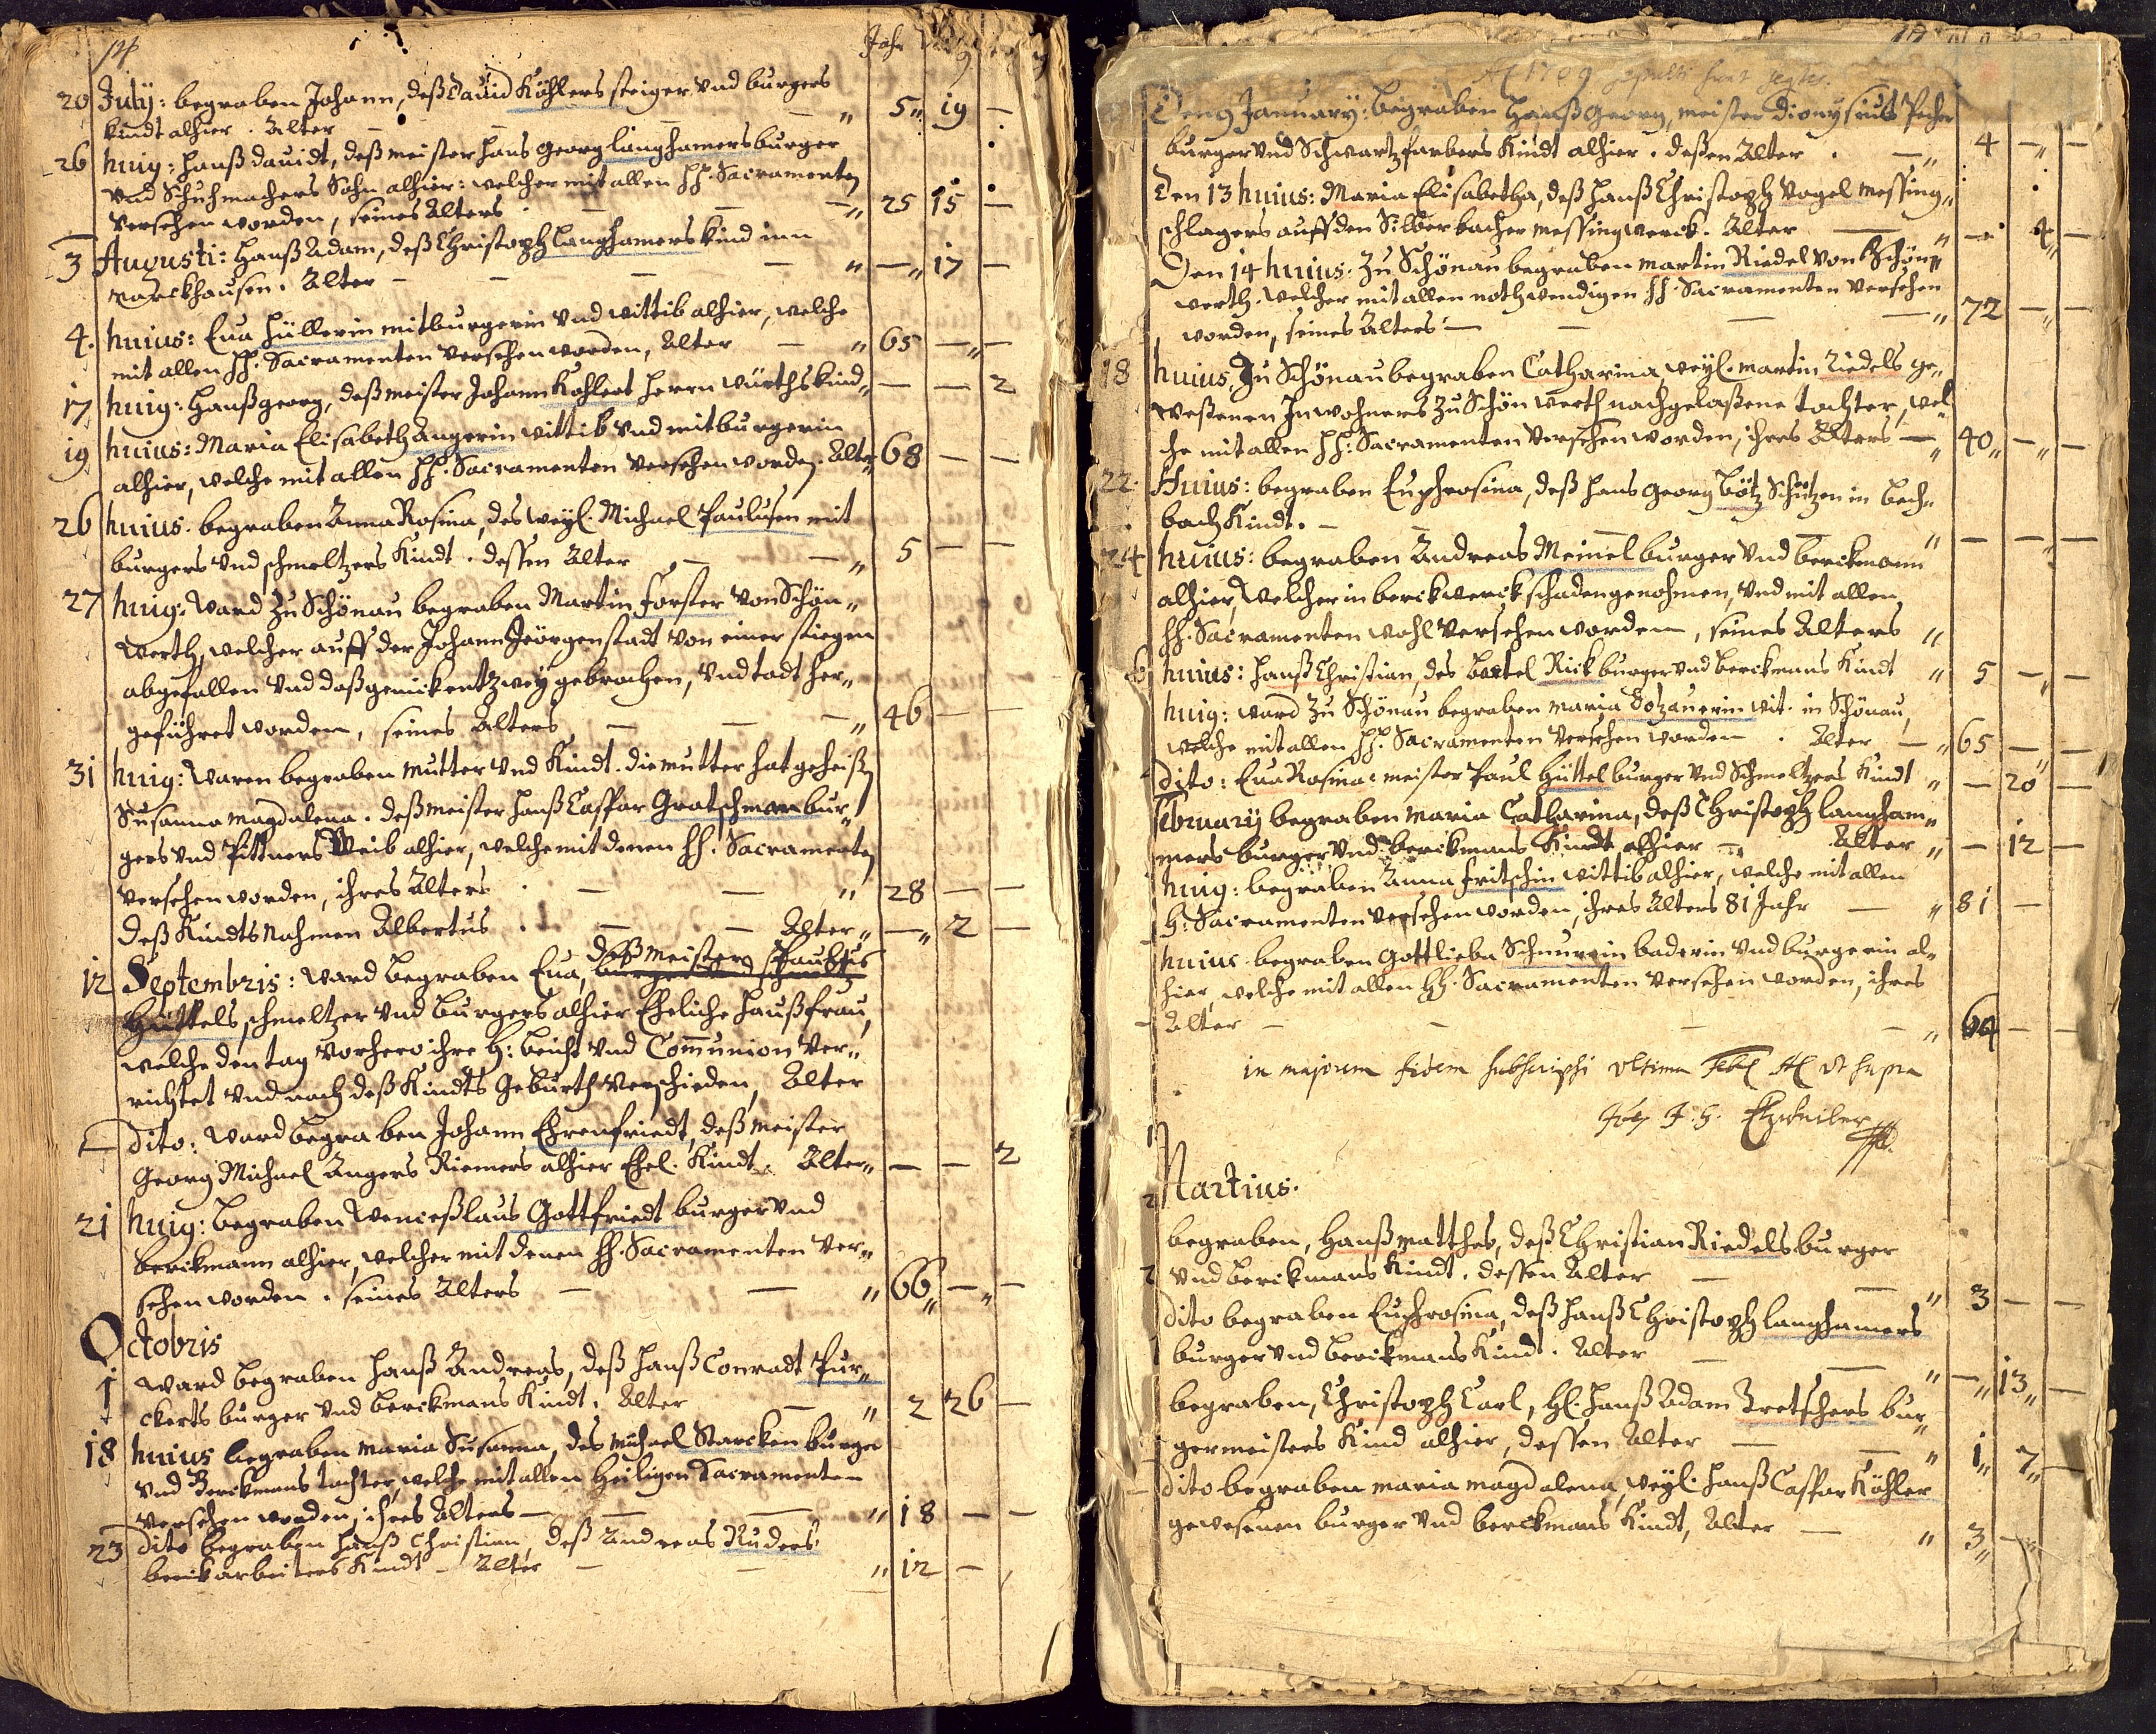 14
Jahr
20 July: begraben Johann, deß David Köhlers steiger und burgers
kindt alhier. Alter — — — „ 5„ 19 —
26 huig: Hanß Davidt, deß meister Hans Georg langhamers burger
und Schuhmachers Sohn alhier: welcher mit allen HH. Sacramenten
versehen worden, seines Alters — — —„ 25 15 —
3 Augusti: Hanß Adam, deß Christoph langhamers kind inn
Marckhausen. Alter — — — „ —„ 17 —
4. huius: Eva Hüllerin mitburgerin und wittib alhier, welche
mit allen HH. Sacramenten versehen worden, Alter — „ 65 —„—
17 huig: Hanß georg, deß meister Johann Kohlert Herrn würths kind„ — — 2
19 huius: Maria Elisabeth Angerin wittib und mitburgerin
alhier, welche mit allen HH. Sacramenten versehen worden. Alter„ 68 — —
26 huius. begraben Anna Rosina, des weyl. Michael Paulusen mit
burgers und schmeltzers Kindt. dessen Alter — —„ 5 — —
27 huig: Ward zu Schönau begraben Martin Forster von Schön„
werth, welcher auff der Johann Jeörgenstadt von einer stiegen
abgefallen und daß genick entzwey gebrochen, und todt her„
geführet worden, seines Alters — — —„ 46 — —
31 huig: Waren begraben Mutter und Kindt. die mutter hat geheißen
Susanna Magdalena. deß meister Hanß Caspar Gratschman bur„
gers und Püttners Weib alhier, welche mit denen HH. Sacramenten
versehen worden, ihres Alters. — — „ 28 — —
deß Kindts Nahmen Albertus. — — Alter„ —„ 2 —
deß meister Paulus
12 Septembris: Ward begraben Eva, burger und schmeltz
Hüttels, schmeltzer und burgers alhier Eheliche Haußfrau,
welche den tag vorhero ihre H: beicht und Communion ver„
richtet und nach deß Kindts Geburth verschieden, Alter
dito: Ward begraben Johann Ehrenfriedt, deß meister
Georg Michael Angers Riemers alhier Ehel. Kindt. Alter„ — — 2
21 huig: begraben Wenceßlaus Gottfriedt burger und
berckmann alhier, welcher mit denen HH. Sacramenten ver„
sehen worden. seines Alters — — „ 66„ —„ —
Octobris
1 Ward begraben Hanß Andreas, deß Hanß Conradt Pur„
ckerts burger und berckmans Kindt. Alter — „ 2 26 —
18 huius begraben Maria Susanna, des Michael Starcken burger
und Berckmans tochter, welche mit allen Heiligen Sacramenten
versehen worden, ihres Alters — — — „ 18 — —
23 dito begraben Hanß Christian, deß Andreas Ruders
berckarbeiters Kindt — Alter — — „ 12 —
A 1709 sepulti sunt seqtes.
Den 9 January: begraben Hanß Georg, meister Dionysius Pecher
burger und Schwartzfarbers Kindt alhier. deßen Alter. —„ 4 —„ —
Den 13 huius: Maria Elisabetha, deß Hanß Christoph Vogel Messing„
schlagers auff den Silberbacher messingwerck. Alter — „ — 4„ —
Den 14 huius. zu Schönau begraben Martin Riedel von Schön„
werth. welcher mit allen nothwendigen HH. Sacramenten versehen
worden, seines Alters — — — —„ 72 —„ —
18 huius, zu Schönau begraben Catharina, weyl. Martin Riedels ge„
weßenen Inwohners zu Schönwerth nachgelaßene tochter, wel„
che mit allen HH: Sacramenten versehen worden, ihres Alters — „ 40„ —„ —
22. Huius: begraben Euphrosina, deß Hans Georg Götz Schützen in bech„
bach Kindt. — — — „ — —„ —
24 huius: begraben Andreas Meinel burger und berckmann
alhier, welcher in berckwerck schaden genohmen, und mit allen
HH. Sacramenten wohl versehen worden, seines Alters „
huius: Hanß Christian, des Bartel Rick burger und berckmans Kindt „ 5 —„ —
huig: ward zu Schönau begraben Maria Dotzauerin wit. in Schönau,
welche mit allen HH. Sacramenten versehen worden. Alter —„ 65 — —
dito: Eva Rosina: meister Paul Hüttel burger und Schmeltzers Kindt „ — 20 —
February begraben Maria Catharina, deß Christoph langham„
mers burger und berckmans Kindt alhier — Alter „ — 12 —
huig: begraben Anna Fritschin wittib alhier, welche mit allen
H: Sacramenten versehen worden, ihres Alters 81 Jahr — „ 81 —
huius begraben Gottlieba Schnurrin baderin und burgerin al„
hier, welche mit allen HH. Sacramenten versehen worden, ihres
Alter — — — —„ 64 — —
in majorem fidem subscripsi ultima Feb A ut supra
Martius.
begraben, Hanß Matthes, deß Christian Riedels burger
und berckmans Kindt. dessen Alter — — „ 3 — —
dito begraben Euphrosina, deß Hanß Christoph langhamers
burger und berckmans Kind. Alter — — „ —„ 13„ —
begraben, Christoph Carl, H. Hanß Adam Bretschers bur„
germeisters Kind alhier, dessen Alter — — „ 1„ 7„ —
dito begraben Maria Magdalena, weyl. Hanß Caspar Köhler
gewesenen burger und berckmans Kindt, Alter — „ 3„ —„